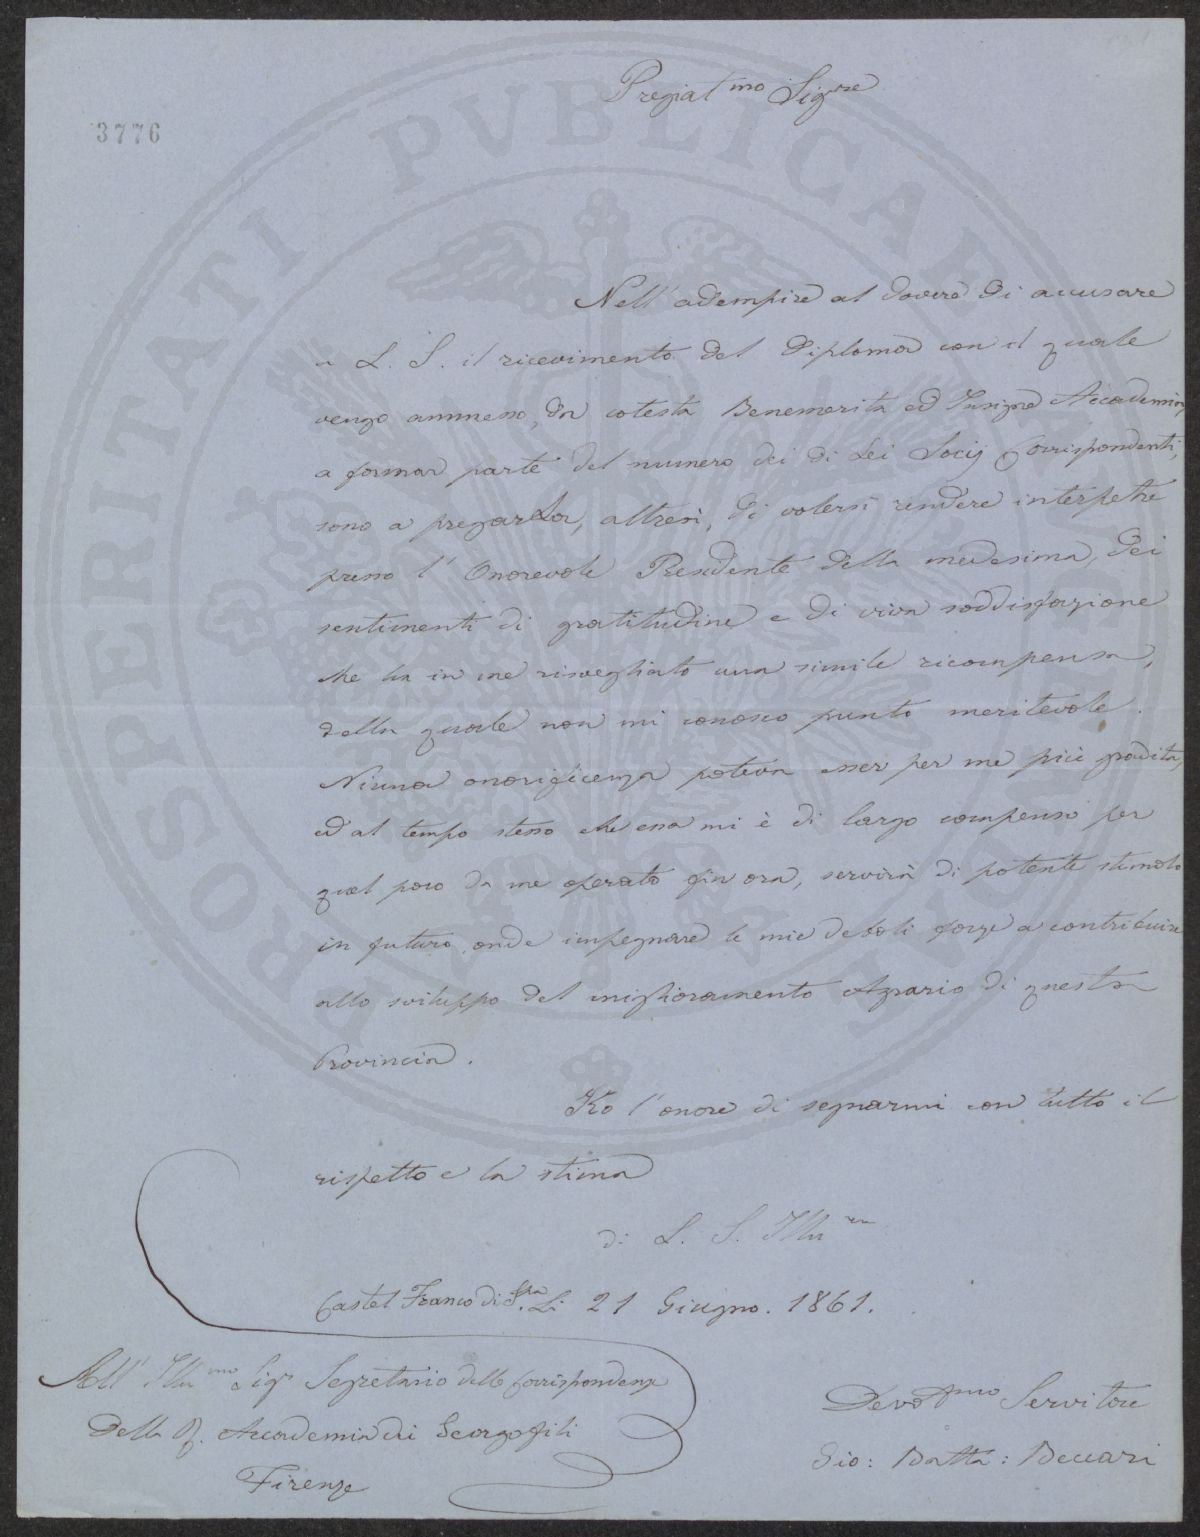 Pregiatmo Sigre
3776
PROSPERITATI PVBLICAE AVGENDAE
Nell' adempire al dovere di accusare
a L. S. il ricevimento del Diploma con il quale
vengo ammesso, da cotesta Benemerita ed Insigne Accademia,
a formar parte del numero dei di Lei Socij Corrispondenti,
sono a pregarLa, altresì, di volersi rendere interpetre
presso l' Onorevole Presidente della medesima, dei
sentimenti di gratitudine e di viva soddisfazione
che ha in me risvegliato una simile ricompensa,
della quale non mi conosco punto meritevole.
Niuna onorificenza poteva esser per me più gradita,
ed al tempo stesso che essa mi è di largo compenso per
quel poco da me operato fin ora, servirà di potente stimolo
in futuro onde impegnare le mie deboli forze a contribuire
allo sviluppo del miglioramento Agrario di questa
Provincia.
Ho l'onore di segnarmi con tutto il
rispetto e la stima
di L. S. Illma
Castel Franco di Sra Li 21 Giugno. 1861.
All' Illmo Sigr Segretario delle Corrispondenze
Della R. Accademia dei Georgofili
Firenze
Devotmo Servitore
Gio: Batta: Beccari